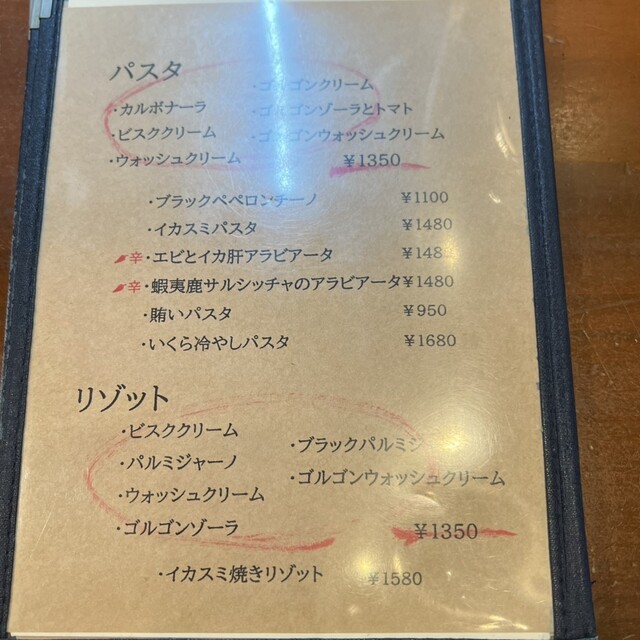 パスタ
・ゴルゴンクリーム
・カルボナーラ ・ゴルゴンゾーラとトマト
・ビスククリーム ・ゴルゴンウォッシュクリーム
・ウォッシュクリーム ¥1350
・ブラックペペロンチーノ ¥1100
・イカスミパスタ ¥1480
辛・エビとイカ肝アラビアータ ¥1480
辛・蝦夷鹿サルシッチャのアラビアータ ¥1480
・賄いパスタ ¥950
・いくら冷やしパスタ ¥1680
リゾット
・ビスククリーム
・ブラックパルミジ
・パルミジャーノ
・ゴルゴンウォッシュクリーム
・ウォッシュクリーム
・ゴルゴンゾーラ ¥1350
・イカスミ焼きリゾット ¥1580